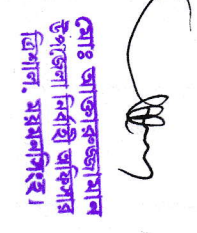 মোঃ আক্তারুজ্জামান
উপজেলা নির্বাহী অফিসার
ত্রিশাল, ময়মনসিংহ।